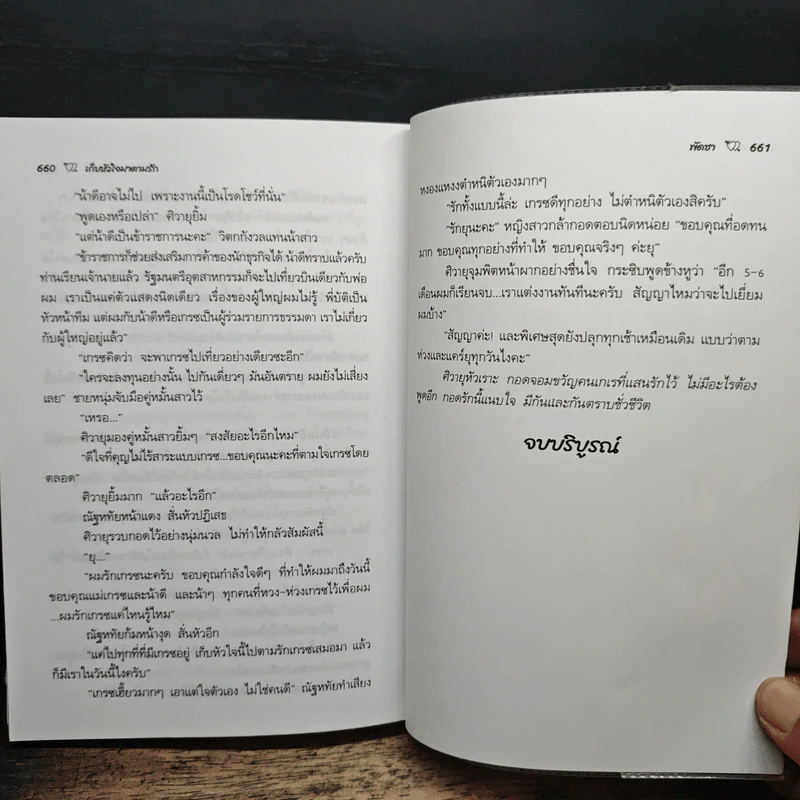 660 เก็บหัวใจมาตามรัก
"น้าดีอาจไม่ไป เพราะงานนี้เป็นโรดโชว์ที่นั่น"
"พูดเองหรือเปล่า" ศิวายุยิ้ม
"แต่น้าดีเป็นข้าราชการนะคะ" วิตกกังวลแทนน้าสาว
"ข้าราชการก็ช่วยส่งเสริมการค้าของนักธุรกิจได้ น้าดีทราบแล้วครับ
ท่านเรียนเจ้านายแล้ว รัฐมนตรีอุตสาหกรรมก็จะไปเที่ยวบินเดียวกับพ่อ
ผม เราเป็นแค่ตัวแสดงนิดเดียว เรื่องของผู้ใหญ่ผมไม่รู้ พี่บัติเป็น
หัวหน้าทีม แต่ผมกับน้าดีหรือเกรซเป็นผู้ร่วมรายการธรรมดา เราไม่เกี่ยว
กับผู้ใหญ่อยู่แล้ว"
"เกรซคิดว่า จะพาเกรซไปเที่ยวอย่างเดียวซะอีก"
"ใครจะลงทุนอย่างนั้น ไปกันเดี่ยวๆ มันอันตราย ผมยังไม่เสี่ยง
เลย" ชายหนุ่มจับมือคู่หมั้นสาวไว้
"เหรอ..."
ศิวายุมองคู่หมั้นสาวยิ้มๆ "สงสัยอะไรอีกไหม"
"ดีใจที่คุญไม่ไร้สาระแบบเกรซ...ขอบคุณนะคะที่ตามใจเกรซโดย
ตลอด"
ศิวายุยิ้มมาก "แล้วอะไรอีก"
ณัฐหทัยหน้าแดง สั่นหัวปฏิเสธ
ศิวายุรวบกอดไว้อย่างนุ่มนวล ไม่ทำให้กลัวสัมผัสนี้
"ยุ..."
"ผมรักเกรซนะครับ ขอบคุณกำลังใจดีๆ ที่ทำให้ผมมาถึงวันนี้
ขอบคุณแม่เกรซและน้าดี และน้าๆ ทุกคนที่หวง-ห่วงเกรซไว้เพื่อผม
...ผมรักเกรซแค่ไหนรู้ไหม"
ณัฐหทัยก้มหน้างุด สั่นหัวอีก
"แค่ไปทุกที่ที่มีเกรซอยู่ เก็บหัวใจนี้ไปตามรักเกรซเสมอมา แล้ว
ก็มีเราในวันนี้ไงครับ"
"เกรซเฮี้ยวมากๆ เอาแต่ใจตัวเอง ไม่ใช่คนดี" ณัฐหทัยทำเสียง
พัดชา 661
หงองแหงงตำหนิตัวเองมากๆ
"รักทั้งแบบนี้ล่ะ เกรซดีทุกอย่าง ไม่ตำหนิตัวเองสิครับ"
"รักยุนะคะ" หญิงสาวกล้ากอดตอบนิดหน่อย "ขอบคุณที่อดทน
มาก ขอบคุณทุกอย่างที่ทำให้ ขอบคุณจริงๆ ค่ะยุ"
ศิวายุจุมพิตหน้าผากอย่างชื่นใจ กระซิบพูดข้างหูว่า "อีก 5-6
เดือนผมก็เรียนจบ...เราแต่งงานทันทีนะครับ สัญญาไหมว่าจะไปเยี่ยม
ผมบ้าง"
"สัญญาค่ะ! และพิเศษสุดยังปลุกทุกเช้าเหมือนเดิม แบบว่าตาม
ห่วงและแคร์ยุทุกวันไงคะ"
ศิวายุหัวเราะ กอดจอมขวัญคนเกเรที่แสนรักไว้ ไม่มีอะไรต้อง
พูดอีก กอดรักนี้แนบใจ มีกันและกันตราบชั่วชีวิต
จบบริบูรณ์